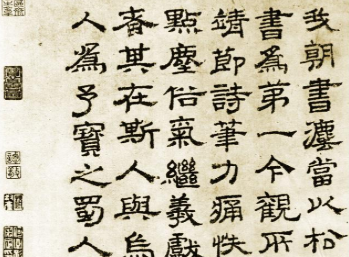 我朝書灋當以松
書為第一今觀所
靖節詩筆力痛快
點塵俗氣繼羲獻
者其在斯人與烏
人為予寶之蜀人